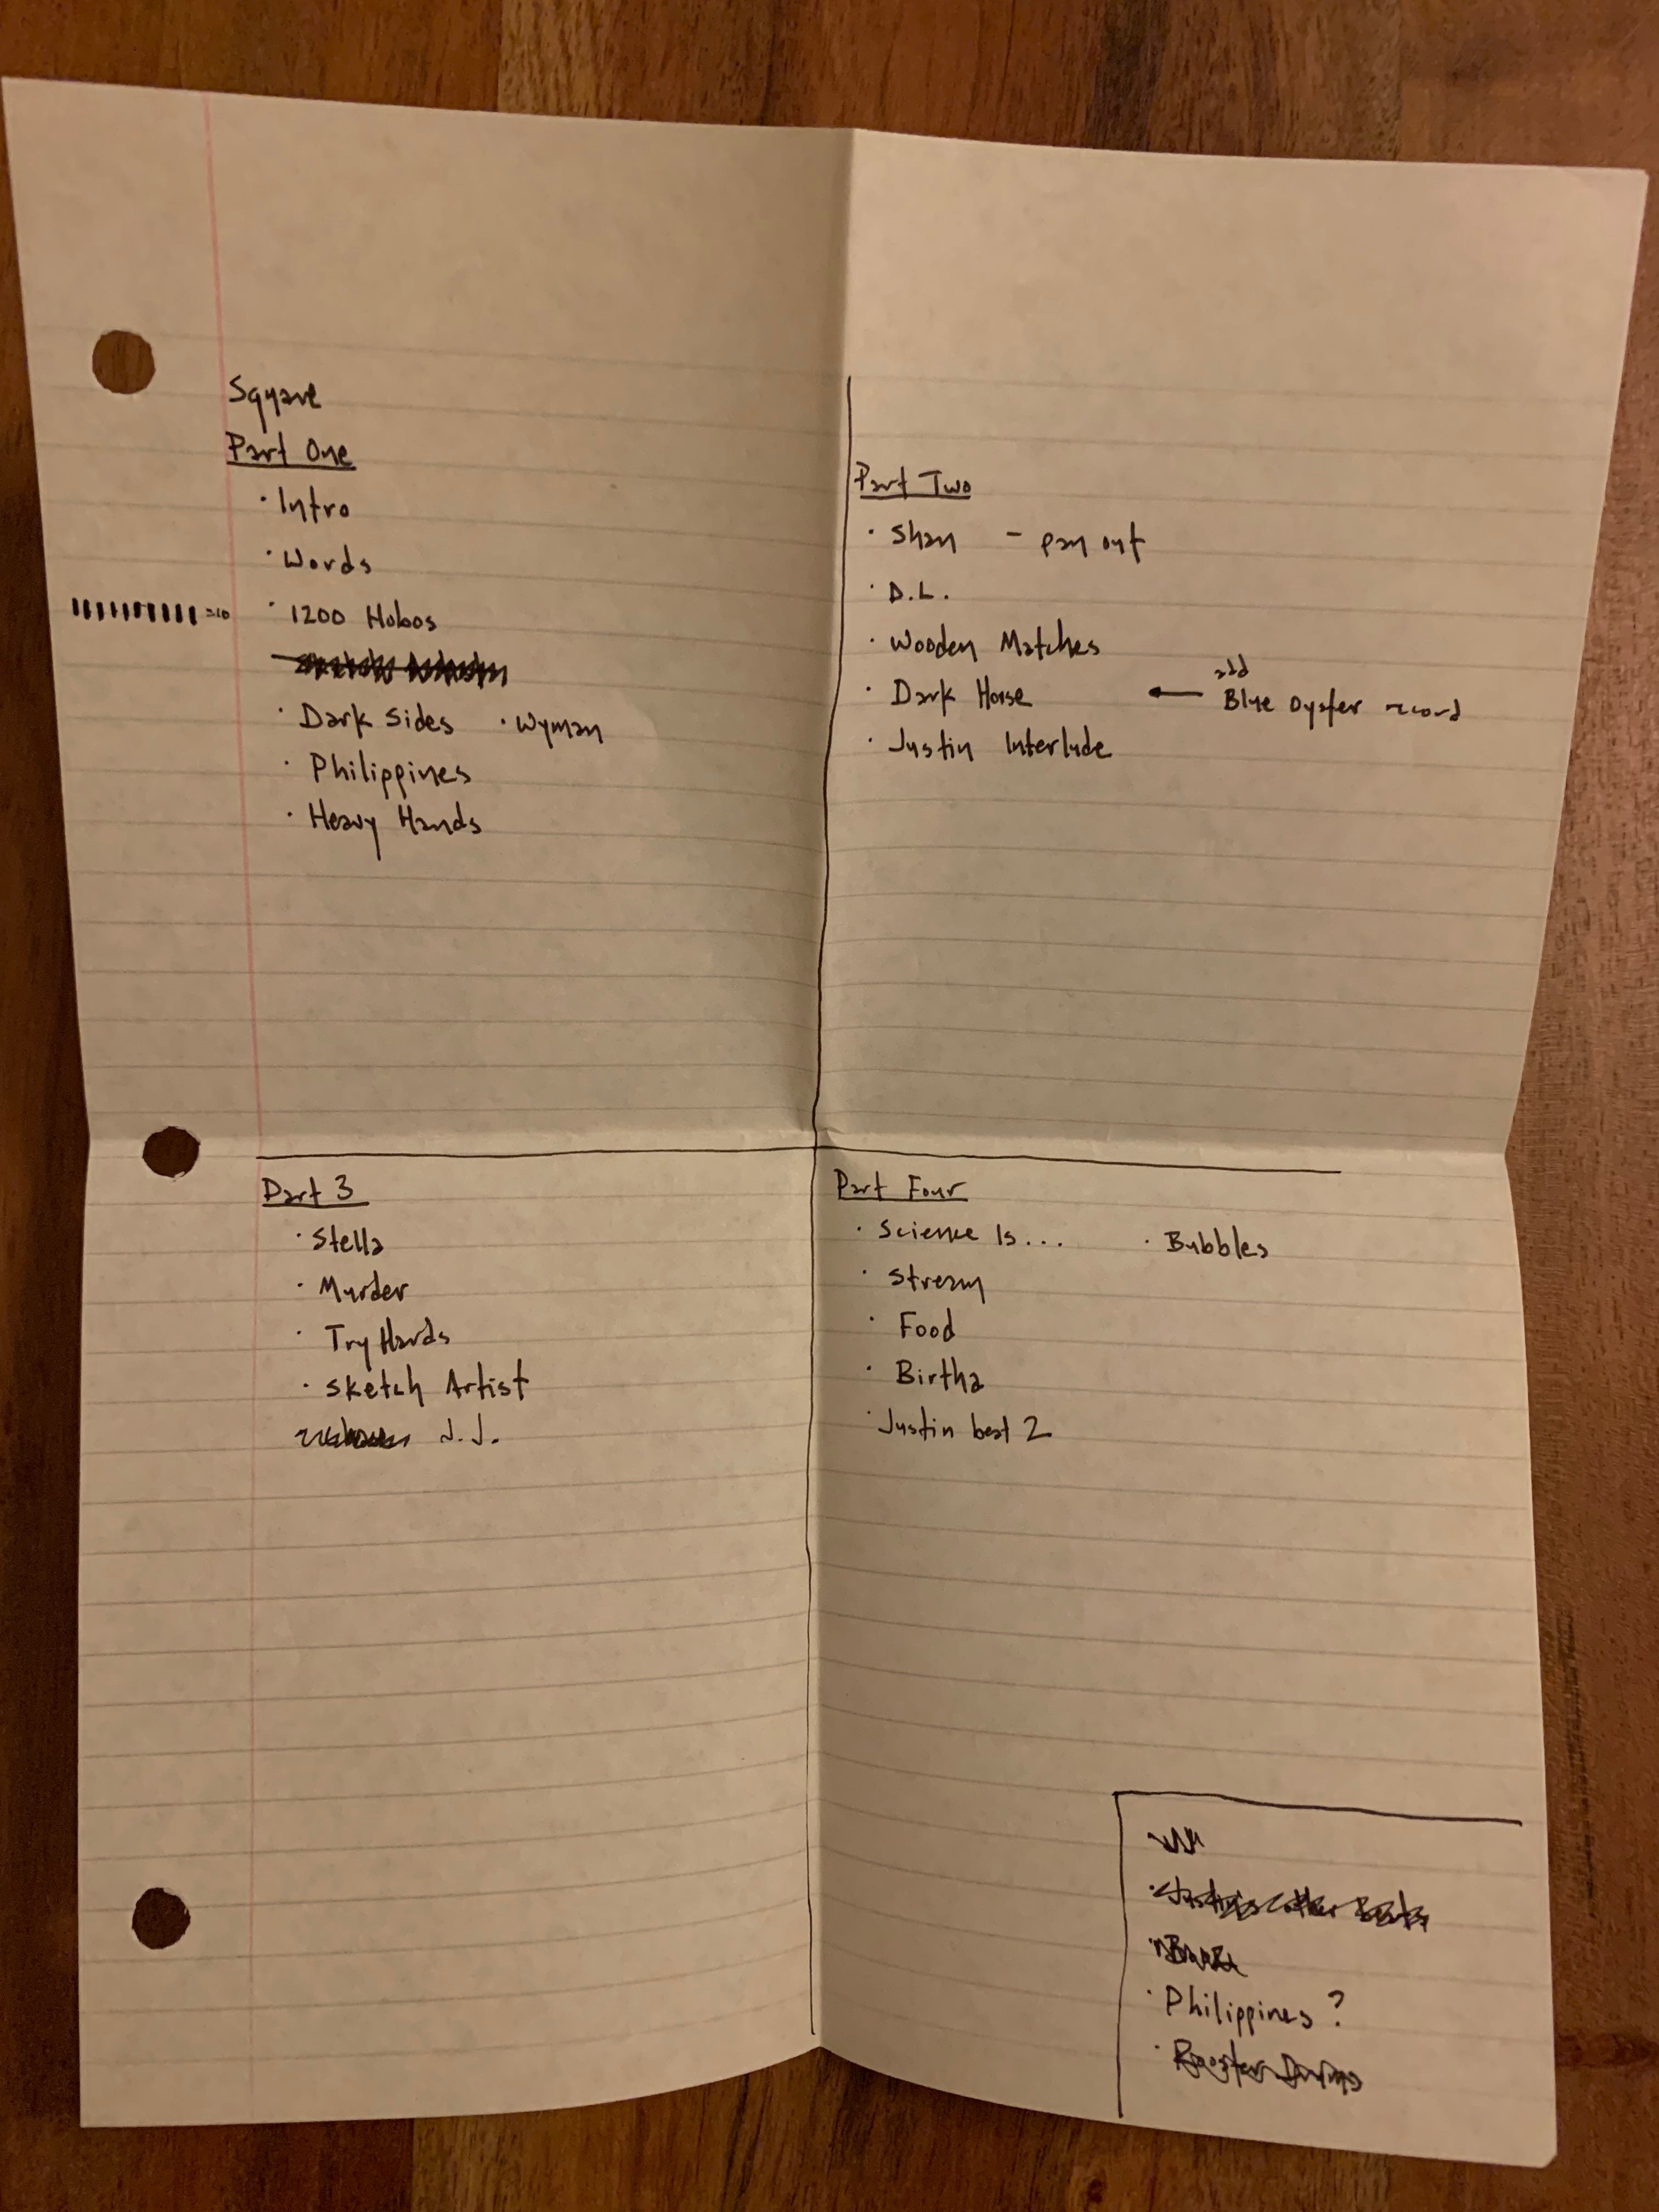 Square
Part One
· Intro
· Words
=10 · 1200 Hobos
· Dark Sides · Wyman
· Philippines
· Heavy Hands
Part Two
· Shan - pan out
· D.L.
· Wooden Matches
add
· Dark Horse ← Blue Oyster record
· Justin Interlude
Part 3
· Stella
· Murder
· Try Hards
· Sketch Artist
J.J.
Part Four
· Science Is... · Bubbles
· Stream
· Food
· Birtha
· Justin beat 2
· Philippines?